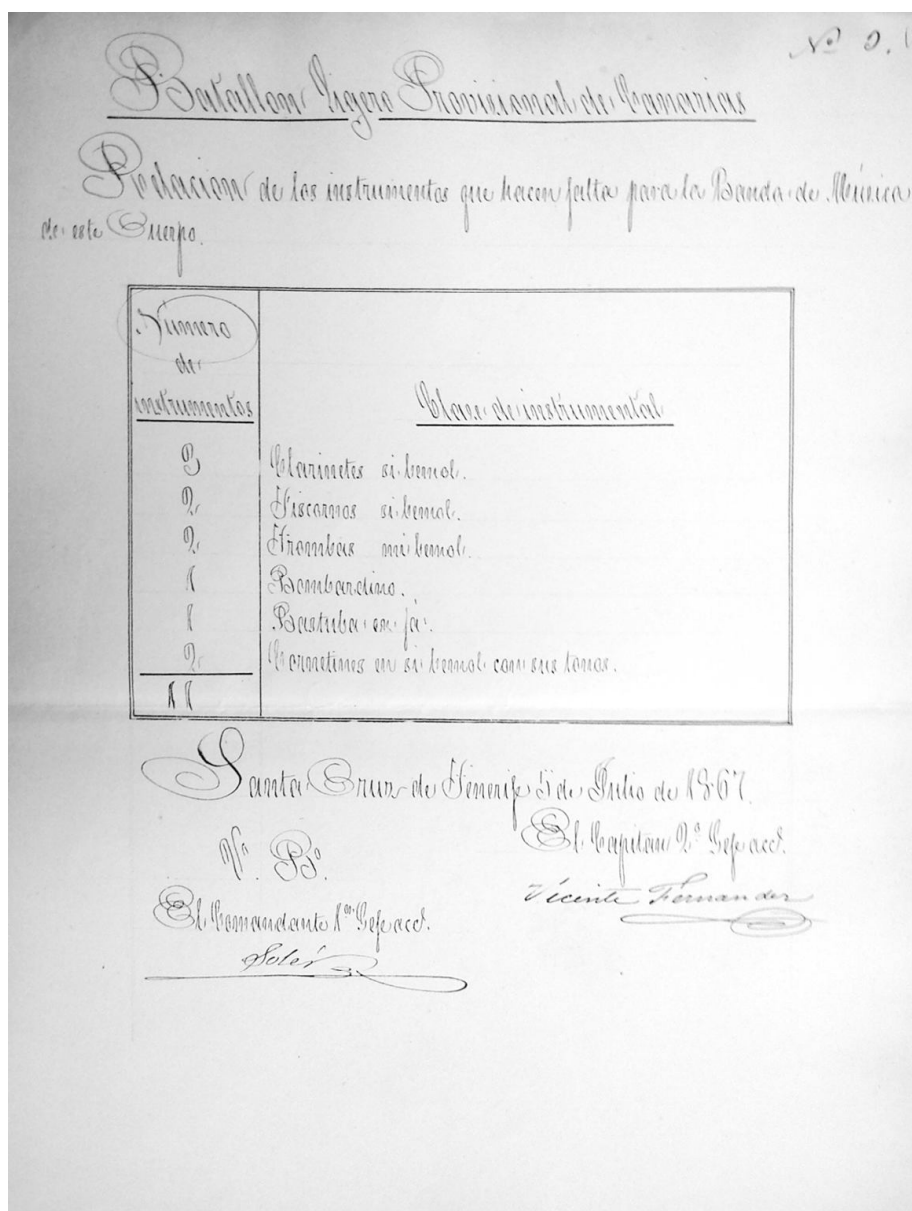 Nº 2.
Batallon Ligero Provisional de Canarias
Relacion de los instrumentos que hacen falta para la Banda de Música
de este Cuerpo.
Número
de
instrumentos
Clase de instrumental
3 Clarinetes si bemol.
2 Fiscornos si bemol.
2 Trombas mi bemol.
1 Bombardino.
1 Bastuba en fa.
2 Cornetines en si bemol con sus tonos.
11
Santa Cruz de Tenerife 5 de Julio de 1867.
El Capitan 2º Gefe accl.
Vº Bº
Vicente Fernandez
El Comandante 1er Gefe accl.
Soler